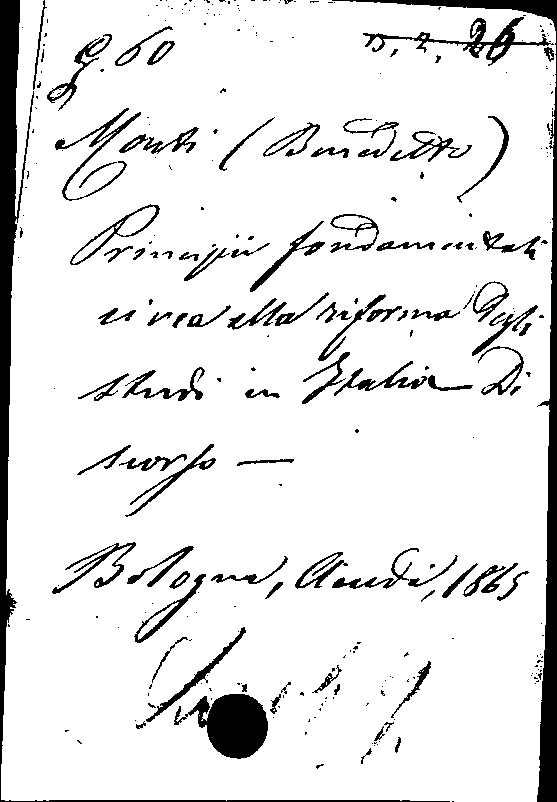 G. 60
D. 2. 26
Monti (Benedetto)
Principii fondamentali
circa alla riforma degli
studi in Italia — Di
scorso —
Bologna, 1865